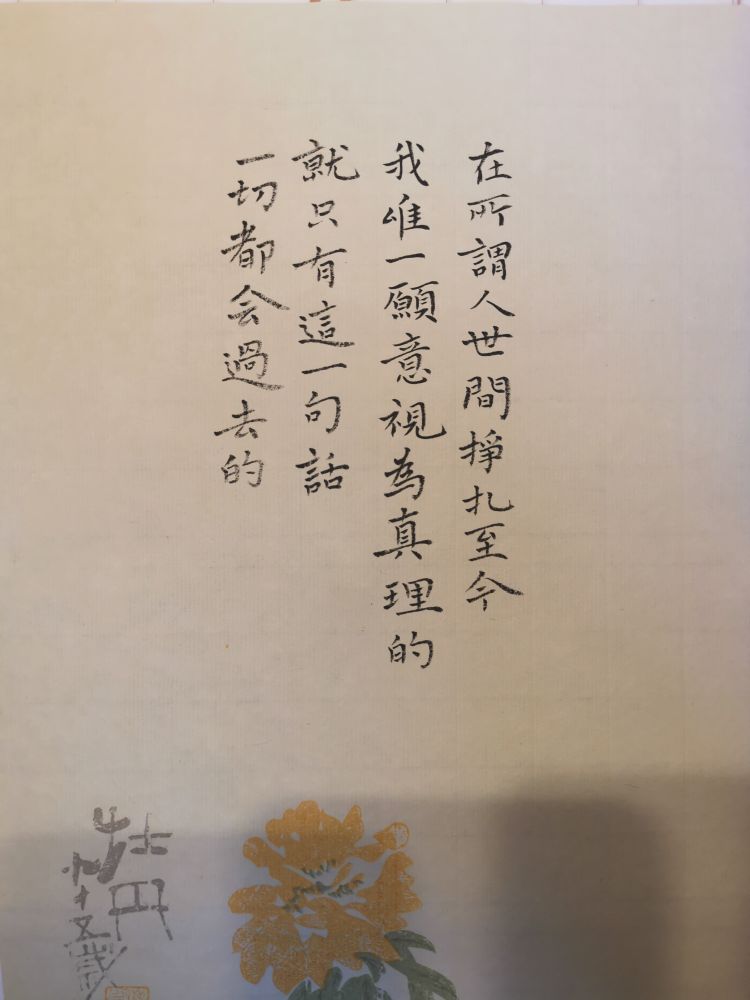 在所謂人世間掙扎至今
我唯一願意視為真理的
就只有這一句話
一切都会過去的
牡丹
九十五歲